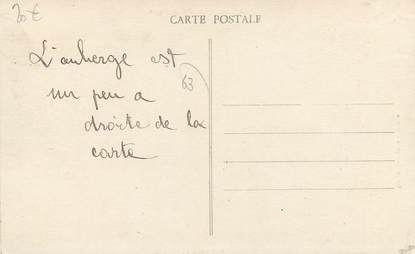 20€
CARTE POSTALE
L'auberge est
63
un peu a
droite de la
carte